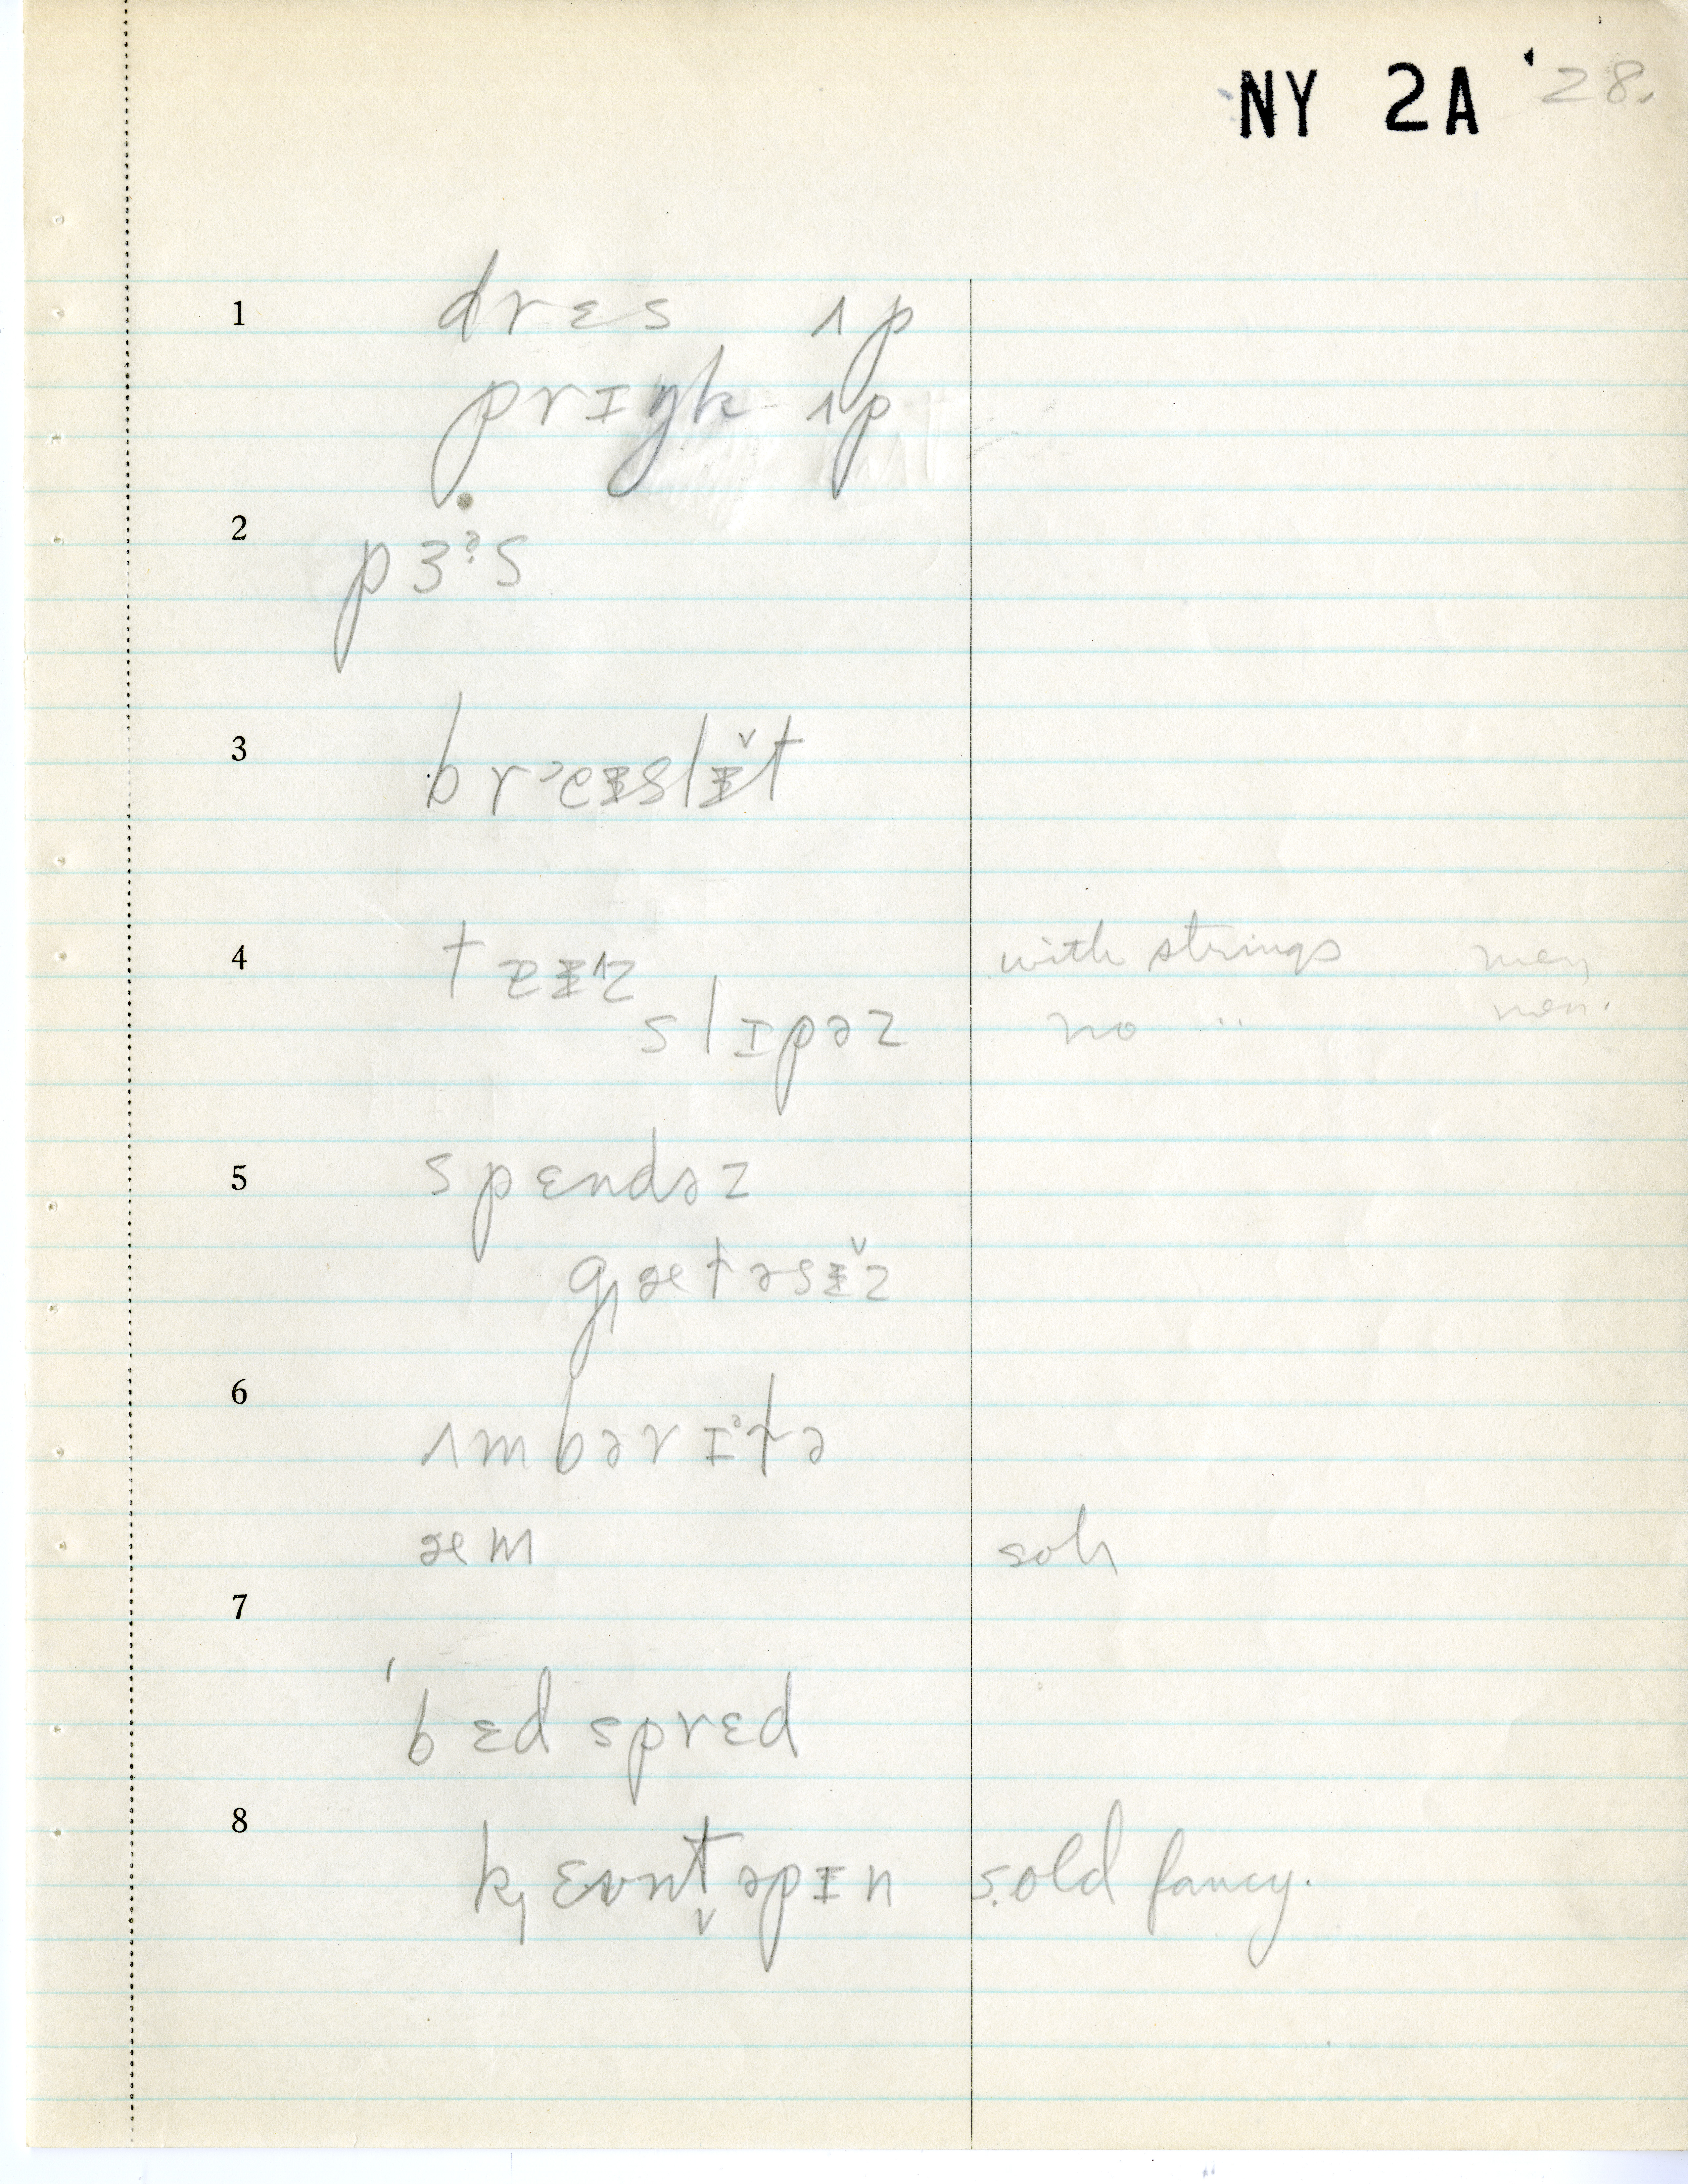 NY 2A '28.
1 drɛs ʌp
prɪŋk ʌp
2 pɜˀs
3 brɛɪslɪ̌t
4 with strings men
slɪpəz no " men.
5 spɛndəz
gætəsɪ̌z
6 ʌmbərɪtə
æm
7
'bɛd sprɛd
8 kɛʊntəpɪn s. old fancy.